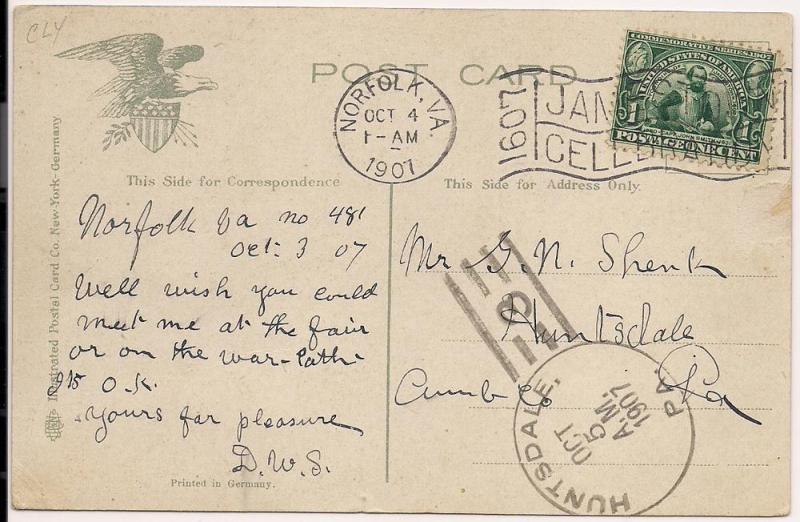 CLY
POST CARD
NORFOLK, VA.
OCT 4
1-AM
1907
1607
JAM
CELEB
COMMEMORATIVE SERIES 1907
UNITED STATES OF AMERICA
1 1
POSTAGE ONE CENT
This Side for Correspondence
This Side for Address Only.
Illustrated Postal Card Co. New-York-Germany
Norfolk Va no 481
Oct. 3 07
Well wish you could
meet me at the fair
or on the war-Path
O.K.
yours for pleasure
D.W.S.
Printed in Germany.
Mr G. N. Shenk
Huntsdale
Cumb Co Pa
HUNTSDALE. PA.
OCT
5
A.M.
1907